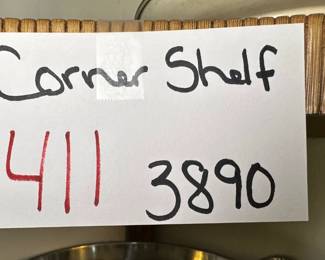 Corner Shelf
411 3890